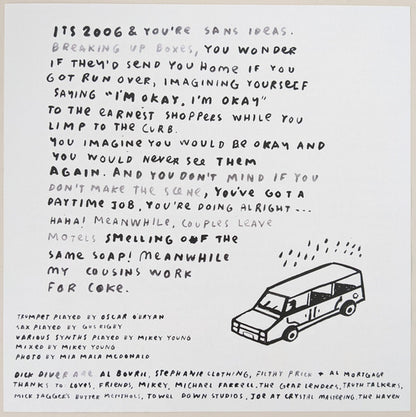 ITS 2006 & YOU'RE SANS IDEAS.
BREAKING UP BOXES, YOU WONDER
IF THEY'D SEND YOU HOME IF YOU
GOT RUN OVER, IMAGINING YOURSELF
SAYING "I'M OKAY, I'M OKAY"
TO THE EARNEST SHOPPERS WHILE YOU
LIMP TO THE CURB.
YOU IMAGINE YOU WOULD BE OKAY AND
YOU WOULD NEVER SEE THEM
AGAIN. AND YOU DON'T MIND IF YOU
DON'T MAKE THE SCENE, YOU'VE GOT A
DAYTIME JOB, YOU'RE DOING ALRIGHT...
HAHA! MEANWHILE, COUPLES LEAVE
MOTELS SMELLING OF THE
SAME SOAP! MEANWHILE
MY COUSINS WORK
FOR COKE.
TRUMPET PLAYED BY OSCAR O'BRYAN
SAX PLAYED BY GUS RIGBY
VARIOUS SYNTHS PLAYED BY MIKEY YOUNG
MIXED BY MIKEY YOUNG
PHOTO BY MIA MALA MCDONALD
DICK DIVER ARE AL, BOURIL, STEPHANIE CLOTHING, FILTHY PRICK + AL MORTGAGE
THANKS TO LOVES, FRIENDS, MIKEY, MICHAEL FARRELL, THE GEAR LENDERS, TRUTH TALKERS,
MICK JAGGER'S BUTTER MENTHOLS, TOWEL DOWN STUDIOS, JOE AT CRYSTAL MASTERING, THE HAVEN